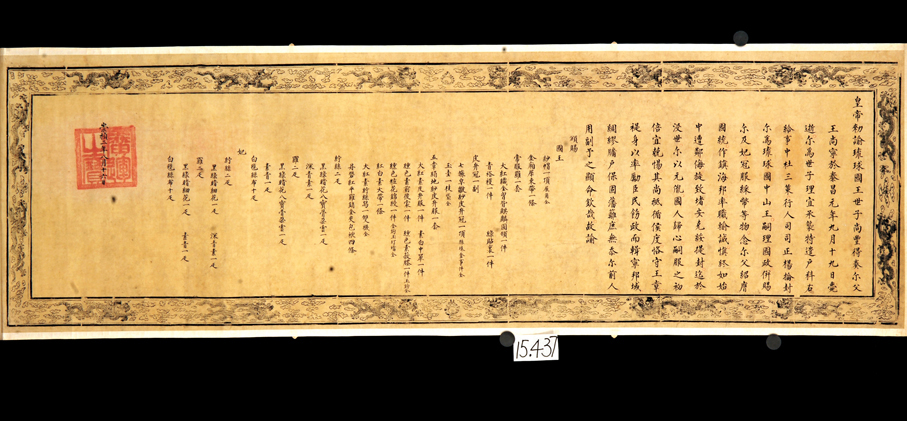 皇帝勅諭琉球國王世子尚豐得奏尔父
王尚寧於泰昌元年九月十九日薨
逝尔為世子理宜承襲特遣户科右
給事中杜三策行人司司正楊掄封
尔為琉球國中山王嗣理國政併賜
尔及妃冠服綵幣等物念尔父紹膺
國統作鎮海邦率職輸誠慎終如始
中遭鄰海旋致堵安克綏提封迄於
没世尔以元儲國人歸心嗣服之初
倍宜兢惕其尚祗循侯度恪守王章
禔身以率勵臣民飭政而輯寧邦域
綢繆牖户保固藩籬庶無忝尔前人
用副予之顯命欽哉故諭
頒賜
國王
紗帽一頂展角全
金廂犀束帶一條
常服羅一套
大紅織金胷背麒麟圓領一件
青褡𧞤一件
緑貼裏一件
皮弁冠一副
七旒皂皺紗皮弁冠一頂旒珠金事件全
玉圭一枝袋全
五章絹地紗皮弁服一套
大紅素皮弁服一件
素白中單一件
纁色素前後裳一件
纁色素蔽膝一件玉鈎全
纁色粧花錦綬一件金鈎玉玎璫全
紅白素大帶一條
大紅素紵絲舄一雙襪全
丹礬紅平羅銷金夾包袱四條
紵絲二疋
黑緑暗花八寳骨朶雲一疋
深青素一疋
羅二疋
黑緑暗花八寳骨朶雲一疋
青素一疋
白氁絲布十疋
妃
紵絲二疋
黑緑暗細花一疋
深青素一疋
羅二疋
黑緑暗細花一疋
青素一疋
白氁絲布十疋
崇禎二年八月十六日